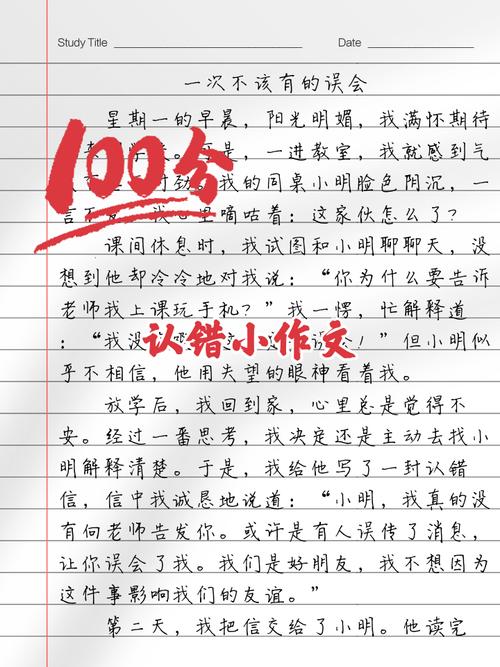 Study Title
Date
一次不该有的误会
星期一的早晨，阳光明媚，我满怀期待
100分
是，一进教室，我就感到气
我的同桌小明脸色阴沉，一
言不 心里嘀咕着：这家伙怎么了？
课间休息时，我试图和小明聊聊天，没
想到他却冷冷地对我说：“你为什么要告诉
老师我上课玩手机？”我一愣，忙解释道
：“我没 ！”但小明似
认错小作文
乎不相信，他用失望的眼神看着我。
放学后，我回到家，心里总是觉得不
安。经过一番思考，我决定还是主动去找小
明解释清楚。于是，我给他写了一封认错
信，信中我诚恳地说道：“小明，我真的没
有向老师告发你。或许是有人误传了消息，
让你误会了我。我们是好朋友，我不想因为
这件事影响我们的友谊。”
第二天，我把信交给了小明。他读完